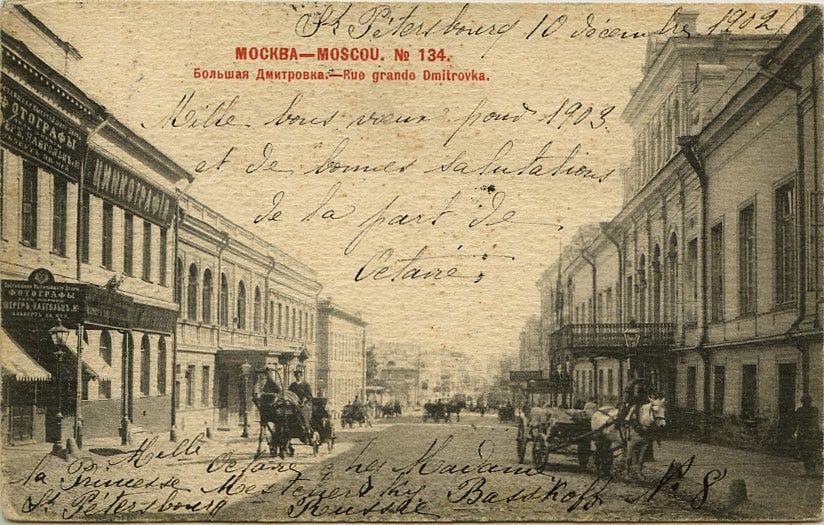 St Pétersbourg 10 décembre 1902
МОСКВА—MOSCOU. № 134.
Большая Дмитровка.—Rue grande Dmitrovka.
Mille bons vœux pour 1903
et de bonnes salutations
de la part de
Octavie
ФОТОГРАФЫ
ФОТОГРАФЫ
ШЕРЕРЪ НАБГОЛЬЦЪ
Mlle Octavie chez Madame
la Princesse Mestchersky Basskoff № 8
St Pétersbourg Russie